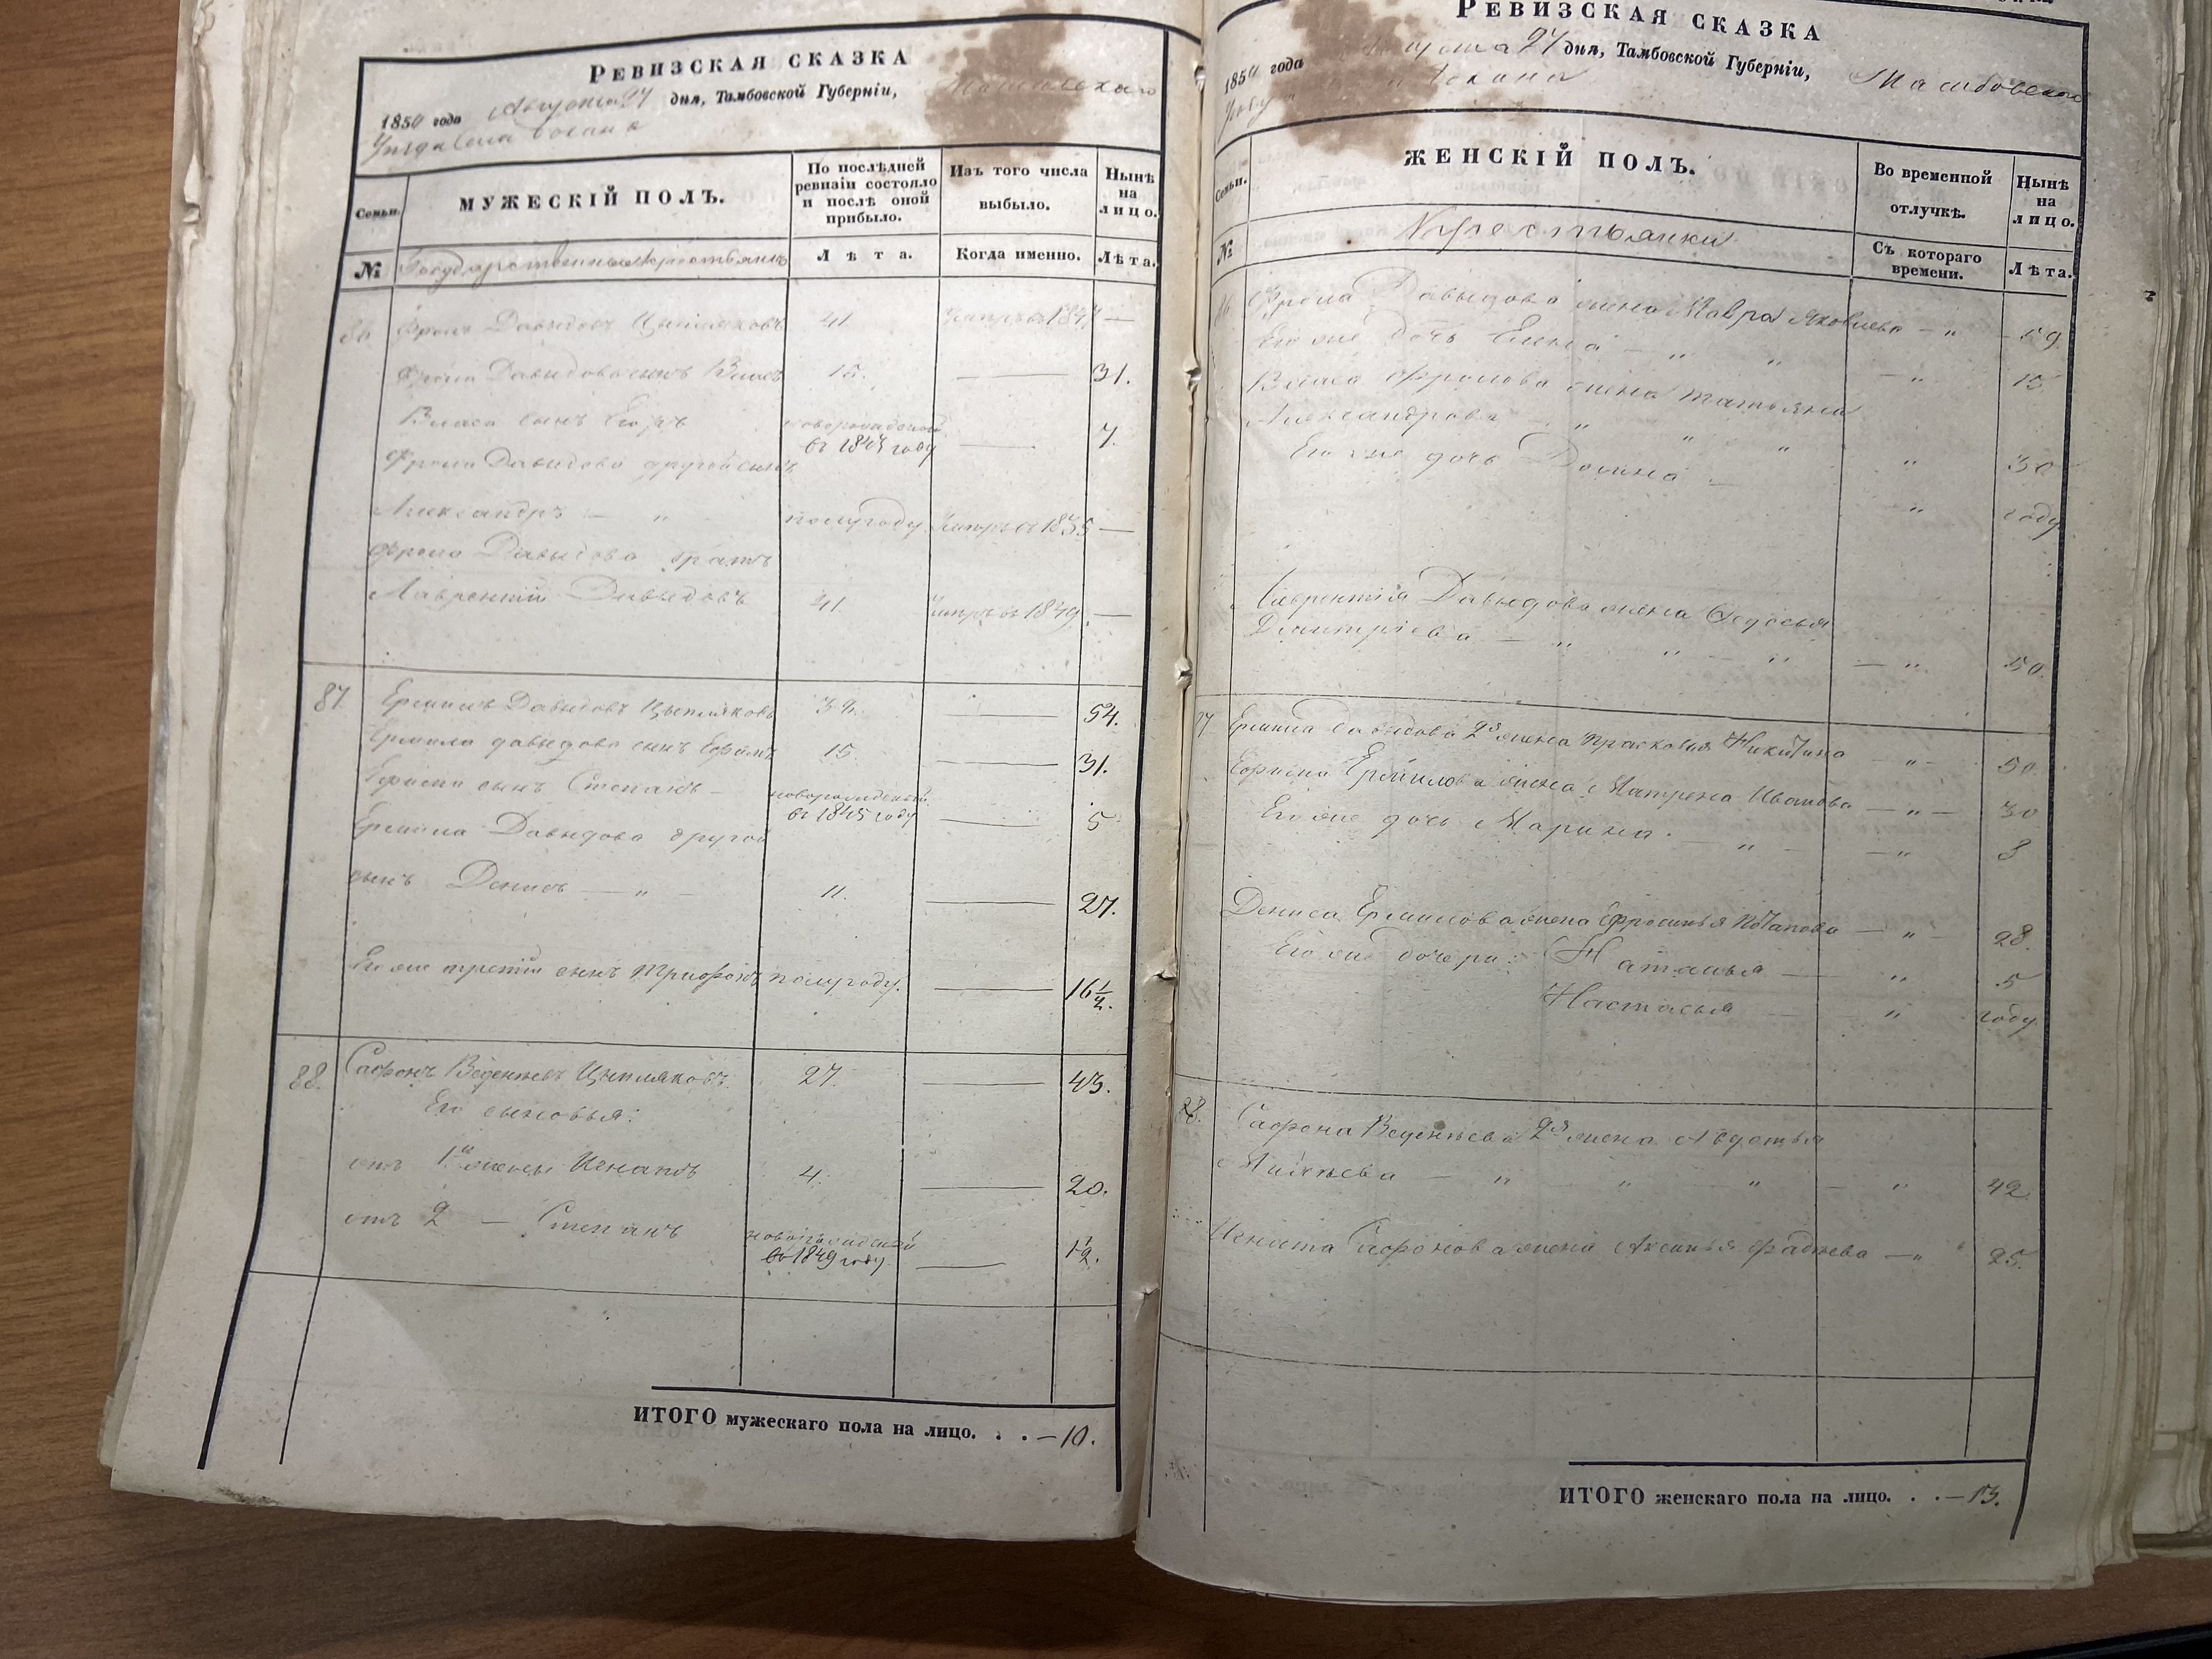 РЕВИЗСКАЯ СКАЗКА
1850 года Августа 27 дня, Тамбовской Губерніи,
Уѣзда Села
Семьи.
МУЖЕСКІЙ ПОЛЪ.
По послѣдней ревизіи состояло и послѣ оной прибыло.
Изъ того числа выбыло.
Нынѣ на лицо.
№
Государственные крестьяне
Лѣта.
Когда именно.
Лѣта.
86 Фролъ Давыдовъ Цыпляковъ 41. Умеръ въ 1847 —
Фрола Давыдова сынъ Власъ 15. — 31.
Власа сынъ Егоръ новорожденной въ 1843 году — 7.
Фрола Давыдова другой сынъ
Александръ — " полугоду Умеръ въ 1835 —
Фрола Давыдова братъ
Лаврентій Давыдовъ 41. Умеръ въ 1849. —
87 Ермилъ Давыдовъ Цыпляковъ 38. — 54.
Ермила Давыдова сынъ Ефимъ 15. — 31.
Ефима сынъ Степанъ — новорожденный въ 1845 году — 5
Ермила Давыдова другой
сынъ Денисъ — " — 11. — 27.
Его же третій сынъ Трифонъ полугоду. — 16½.
88. Сафонъ Веденѣевъ Цыпляковъ 27. — 43.
Его сыновья:
отъ 1й жены Игнатъ 4. — 20.
отъ 2 — Степанъ новорожденной въ 1849 году. — 1½.
ИТОГО мужескаго пола на лицо. . . — 10.
РЕВИЗСКАЯ СКАЗКА
1850 года Августа 27 дня, Тамбовской Губерніи, Тамбовскаго
Семьи.
ЖЕНСКІЙ ПОЛЪ.
Во временной отлучкѣ.
Нынѣ на лицо.
№
Крестьянки
Съ котораго времени.
Лѣта.
86 Фрола Давыдова жена Мавра Яковлева — " 59
Его же дочь Елена — " " — " 15
Власа Фролова жена Татьяна
Александрова — " " " " 30
Его же дочь Домна — " году
Лаврентія Давыдова жена Федосья
Дмитріева — " " — " — " 50
87 Ермила Давыдова 2я жена Прасковья Никитина — " — 50
Ефима Ермилова жена Матрена Иванова — " — 30
Его же дочь Марина. — " — " 8
Дениса Ермилова жена Ефросинья Потапова — " — 28.
Его же дочери: Наталья — " 5
Настасья — " году
88. Сафона Веденѣева 2я жена Авдотья
— " " " — " 42
Игната Сафонова жена Аксинья Фадѣева — " 25.
ИТОГО женскаго пола на лицо. . . — 13.